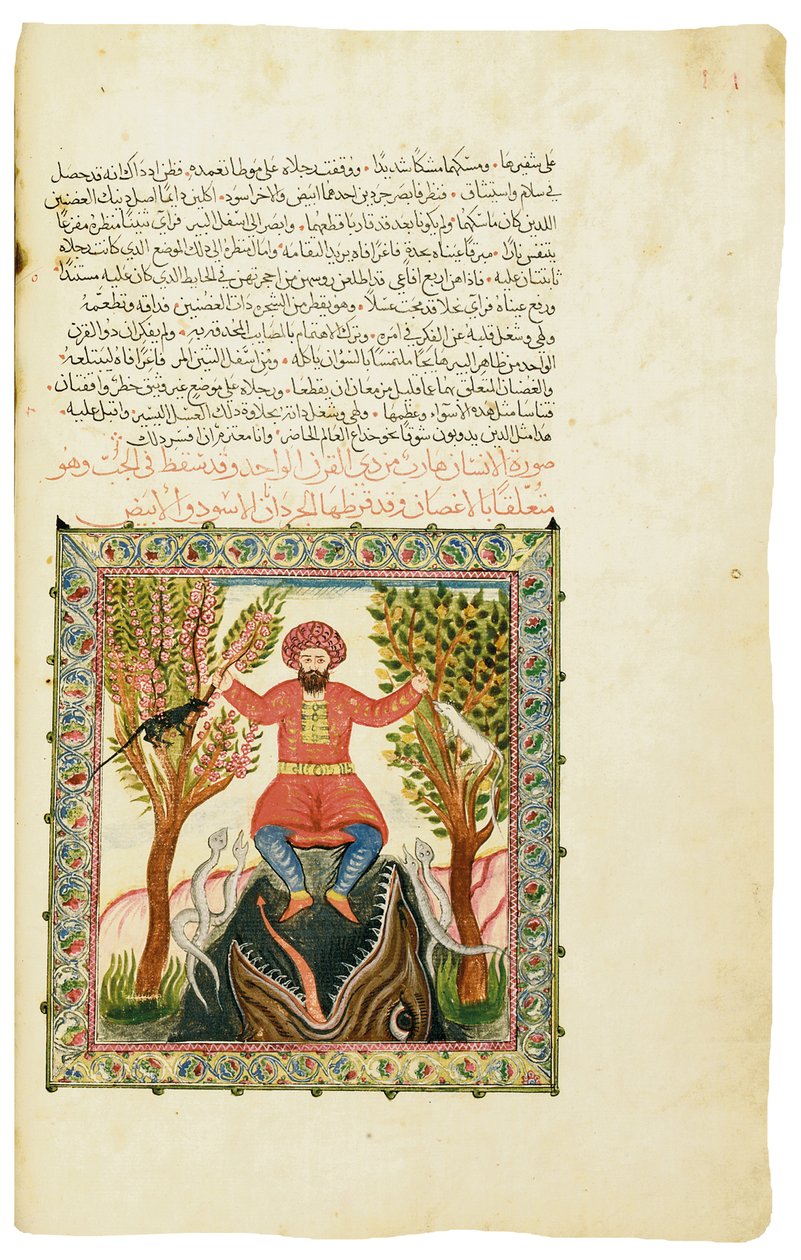 على شفيرها ٠ ومسكهما مسكًا شديدًا ٠ ووقفت رجلاه على موطا تعمده ٠ فظن اذ ذاك انه قد حصل
في سلام واستيثاق ٠ فنظر فابصر جردين احدهما ابيض والاخر اسود ٠ اكلين دايمًا اصل ذينك الغصنين
اللذين كان ماسكهما ٠ ولم يكونا بعد قد قاربا قطعهما ٠ وابصر الى اسفل البير فراى تنينًا منظره مفزعًا
يتنفس نارًا ٠ عيناه بحدة فاغرًا فاه يريد التقامه ٠ وامال منظره الى ذلك الموضع الذي كانت رجلاه
ثابتتان عليه ٠ فاذا هن اربع افاعي قد اطلعن روسهن من احجرتهن في الحايط الذي كان عليه مستندًا ٠
ورفع عيناه فراى نحلا قد مجت عسلًا ٠ وهو يقطر من الشجره ذات الغصنين ٠ فذاقه وتطعمه
ولهى وشغل قلبه عن الفكر في امره ٠ وترك الاهتمام بالمصايب المحدقه به ٠ ولم يفكر ان ذو القرن
الواحد من ظاهر البير هايجًا ملتمسًا بالسؤان ياكله ٠ ومن اسفل التنين المر فاغرًا فاه ليبتلعه ٠
والغصنان المتعلق بهما عما قليل مزمعان ان يقطعا ٠ ورجلاه على موضع غير وثيق خطر واقفتان ٠
فتناسا مثل هذه الاسواء وعظمها ٠ ولهى وشغل ذاته بحلاوة ذلك العسل اليسير ٠ واقبل عليه ٠
هذا مثل الذين يذوبون شوقًا نحو خداع العالم الحاضر ٠ وانا معتزم ان افسر ذلك
صورة الانسان هاربٌ من ذي القرن الواحد وقد سقط في الجُبّ وهو
متعلّقًا بالاغصان وقد قرظها الجردان الاسود والابيض